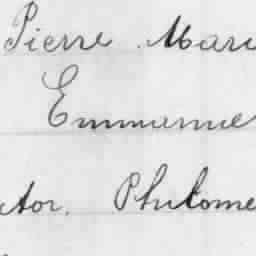 Pierre Mari
Emmanue
ctor, Philome